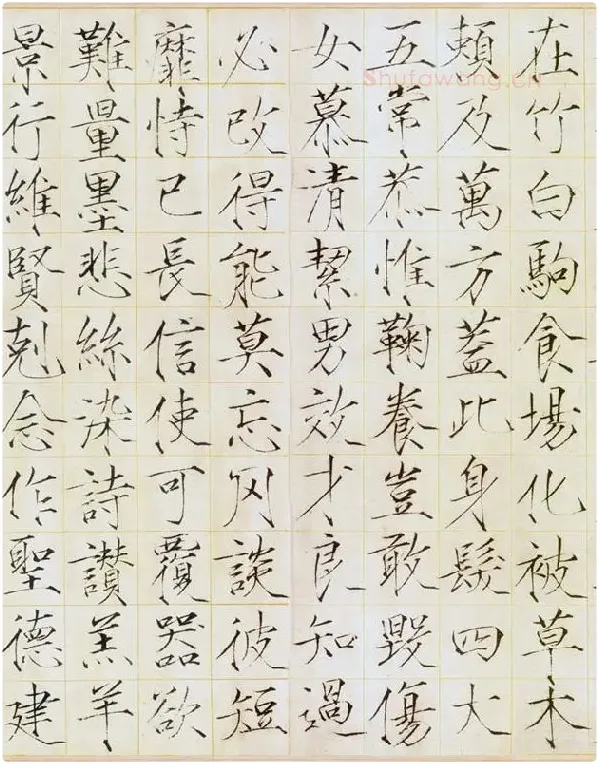 在竹白駒食場化被草木
頼及萬方蓋此身髮四大
五常恭惟鞠養豈敢毀傷
女慕清絜男效才良知過
必改得能莫忘罔談彼短
靡恃己長信使可覆器欲
難量墨悲絲染詩讃羔羊
景行維賢剋念作聖德建
Shufawang.cn